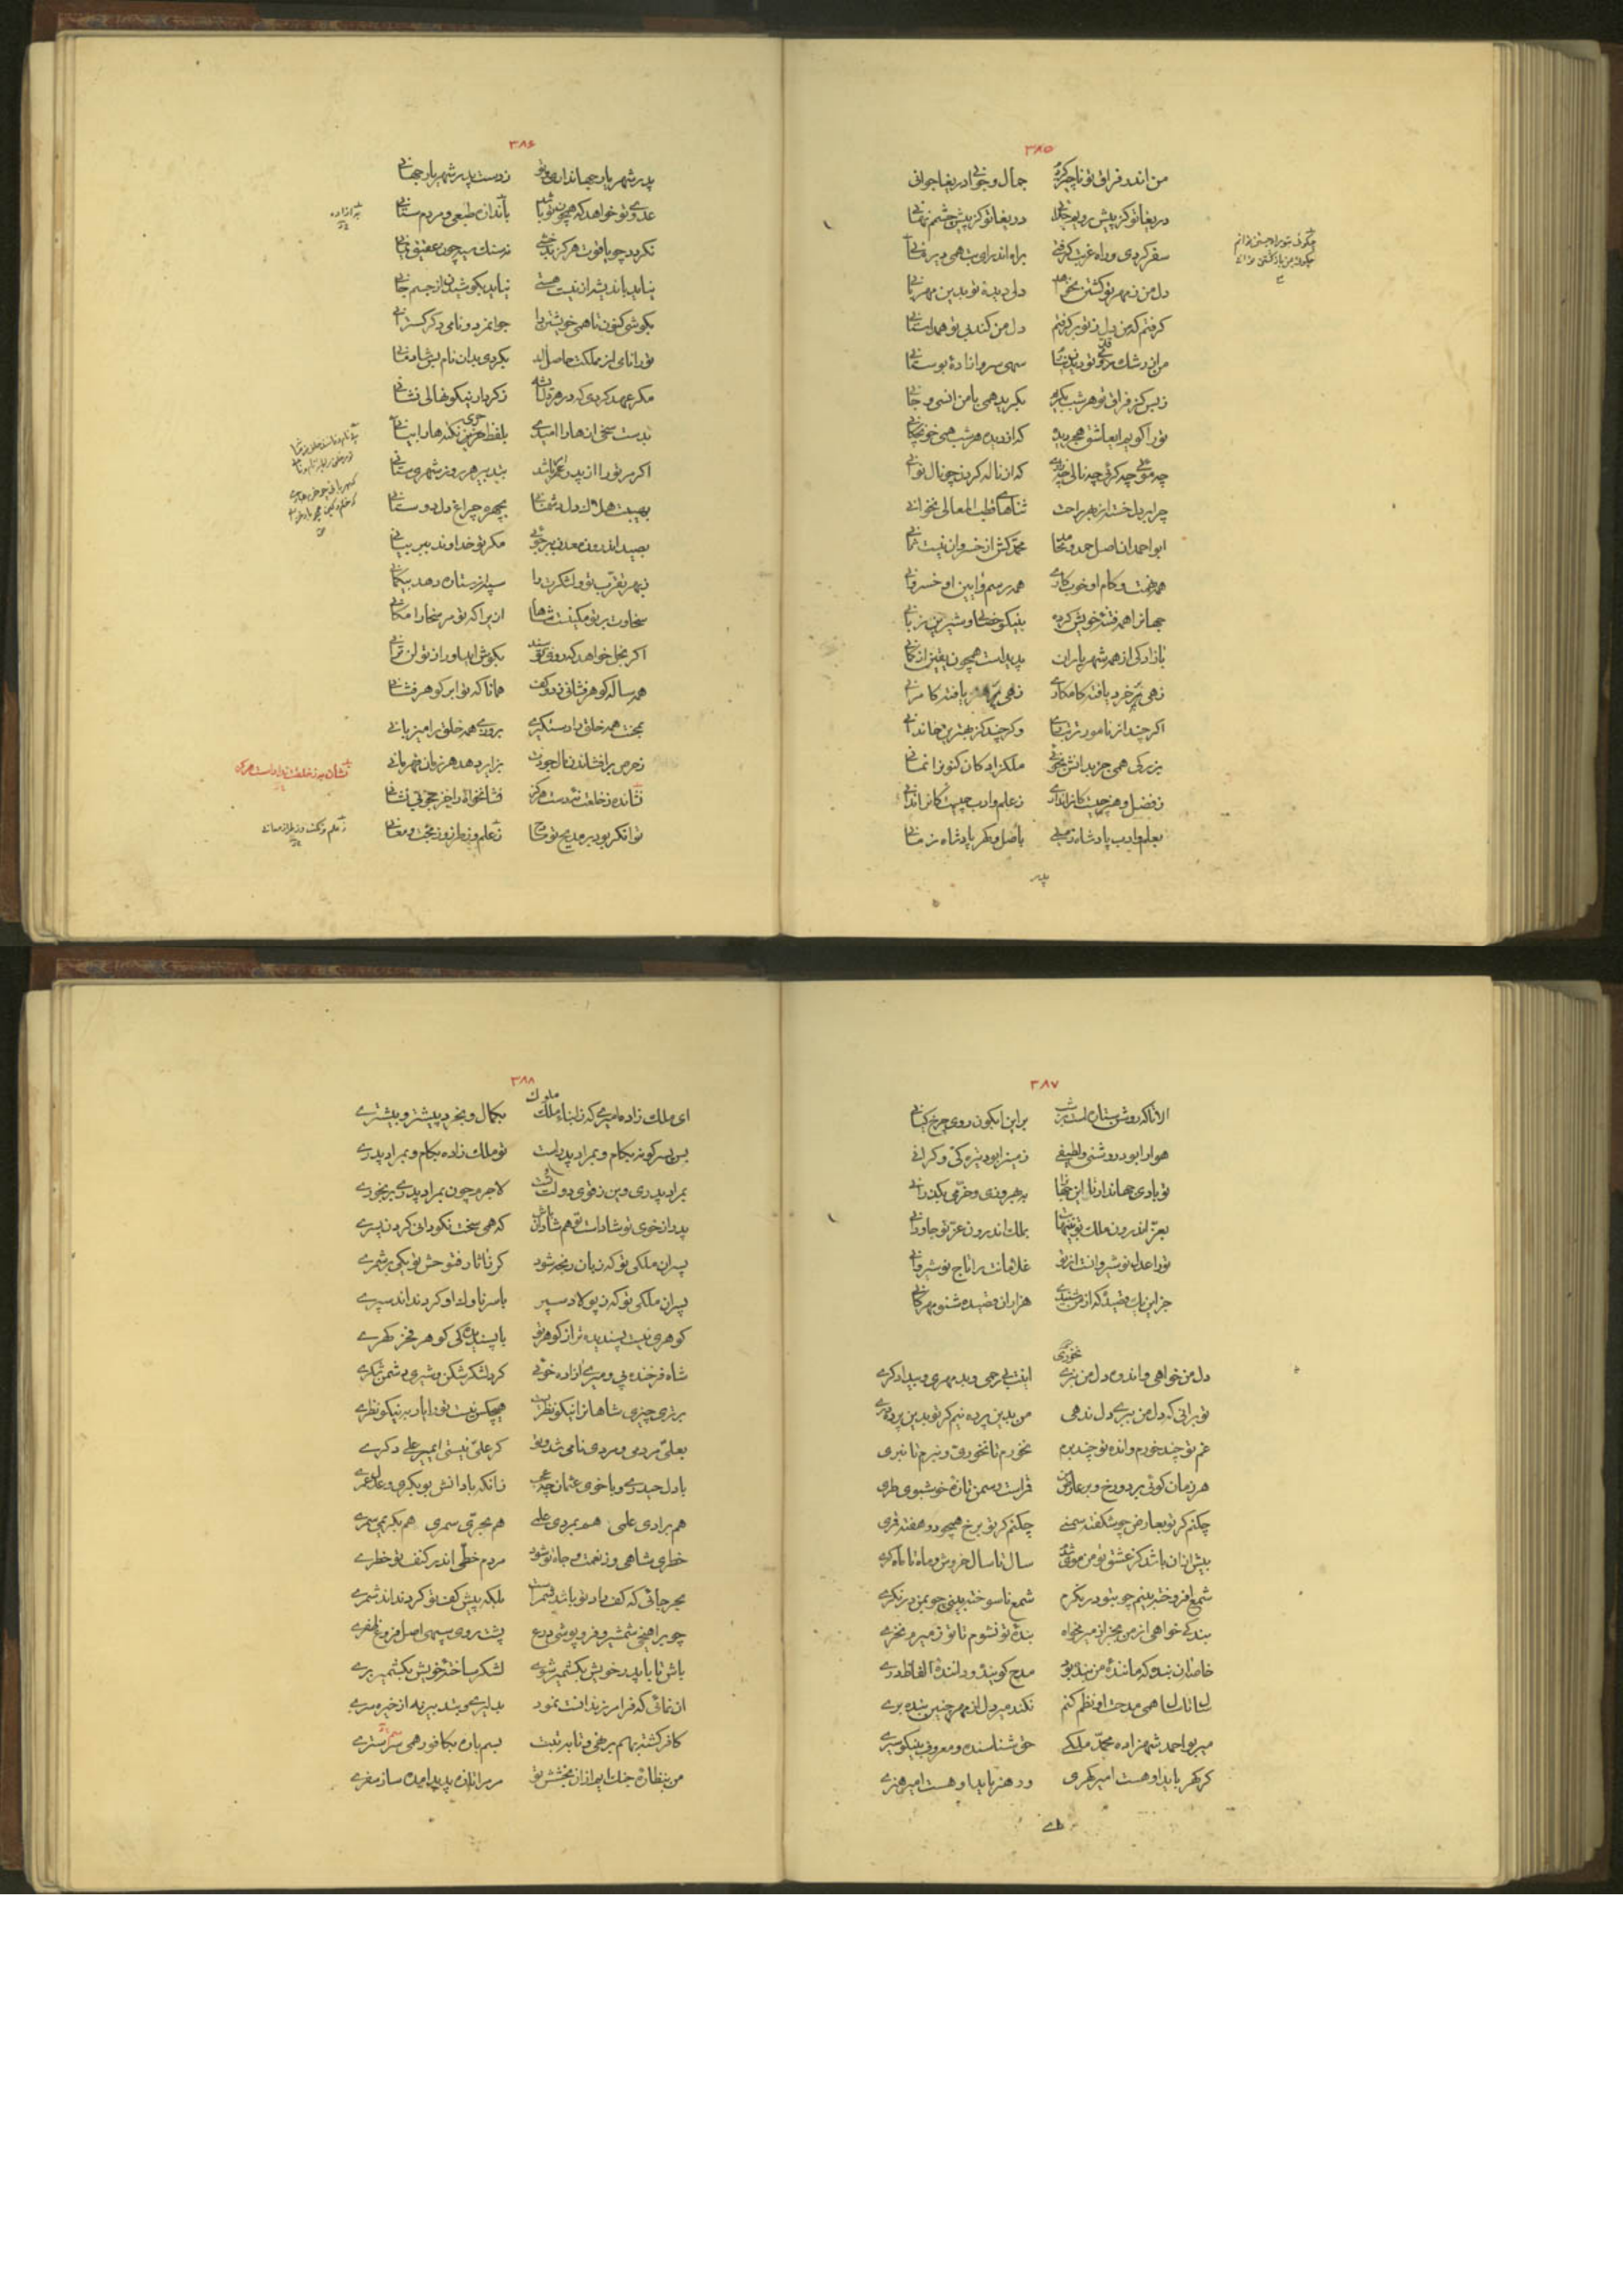 ۳۸۵
من اندر فراق تو ناچیز کردم جمال و جوانی دریغا جوانی
دریغا تو کز پیش رویم جدایی دریغا تو کز پیش چشمم نهانی
سفر کردی و راه غربت گرفتی براه اندر ای بت همی دیر مانی
دل من ز مهر تو گشتن نخواهد دلی دیده تو بدین مهربانی
گرفتم که من دل ز تو برگرفتم دل من کند بی تو همداستانی
من از رشک قد تو دیدن نیارم سهی سرو آزاده بوستانی
ز بس کز فراق تو هر شب بگریم بگرید همی با من انسی و جانی
ترا گویم ای عاشق هجر دیده که از دیده هر شب همی خون چکانی
چه مویی چه گریی چه نالی چه زاری که از ناله کردن چو نال نوانی
چرا بر دل خسته از بهر راحت ثناهای قطب المعالی نخوانی
ابو احمد آن اصل حمد و محامد محمد کش از خسروان نیست ثانی
همه نهمت و کام او خوب کاری همه رسم و آیین او خسروانی
جهان را همه فتنه خویش کرده بنیکو خصالی و شیرین زبانی
بآزادگی از همه شهریاران پدیدست همچون یقین از گمانی
زهی بر خرد یافته کامگاری زهی بر هنر یافته کامرانی
اگر چند از نامور تر تباری وگر چند کز بهترین خاندانی
بزرگی همی جز بدانش نجویی ملکزادگان کنون را نمانی
ز فضل و هنر چیست کان را نداری ز علم و ادب چیست کان را ندانی
بعلم و ادب پادشاه زمینی باصل و گهر پادشاه زمانی
پدر
۳۸۶
پدر شهریار جهانداری و تو ز دست پدر شهریار جهانی
عدوی تو خواهد که همچون تو باشد بآزاده طبعی و مردم ستانی
نگردد چو یاقوت هرگز بدخشی نه سنگ سیه چون عقیق یمانی
نیاید باندیشه از نیست هستی نیاید بکوشیدن از جسم جانی
بکوشی کنون تا همی خویشتن را جوانمرد و نامی و گرگستر آنی
ترا نامی از مملکت حاصل آمد بکردی بدان نام بس شادمانی
مگر عهد کردی که در هر دل ای شه ز کردار نیکو نهالی نشانی
بدست سخی آزها را امیدی بلفظ حری نکته ها را بیانی
اگر مر ترا از پدر امر باشد بتدبیر هر روز شهری ستانی
بهیبت هلاک دل دشمنانی بچهره چراغ دل دوستانی
بصید اندرون معدن ببر جویی مگر تو خداوند ببر بیانی
ز بهر تقرب تو و لشکرت را سپهر از ستاره دهد بیستگانی
سخاوت بر تو مکینست شاها ازیرا که تو مر سخا را مکانی
اگر بخل خواهد که روی تو بیند بگوش آید او را ز تو لن ترانی
همه ساله گوهر فشانی ز دو کف همانا که تو ابر گوهر فشانی
بجنت همه خلق را دستگیری بروزی همه خلق را میزبانی
ز حرص برافشاندن مال جودت بزایر دهد هر زمان قهرمانی
توانگر بود بر مدیح تو مادح
۳۸۷
الا تا که روشن ستاره است هر شب برین آبگون روی چرخ کیانی
هوا را بود روشنی و لطیفی زمین را بود تیره گی و گرانی
تو بادی جهاندار تا این جهان را ببهروزی و خرمی بگذرانی
بعز اندرون ملک تو بینهایت بملک اندرون عز تو جاودانی
ترا عدل نوشیروانست از تو غلامانت را تاج نوشیروانی
جز این یک قصیده که از من شنیدی هزاران قصیده شنو مهرگانی
دل من خواهی و اندوه دل من نبری اینت بی رحمی و بد مهری و بیدادگری
تو بر آنی که دل من ببری دل ندهی من بدین پرده نیم گر تو بدین پرده دری
غم تو چند خورم و انده تو چند برم نخورم تا نخوری و نبرم تا نبری
هر زمان گویی بر دو رخ و بر عارض من قرأت و سمن تازه خوشبوی طری
چکنم گر تو بعارض چو شکفته سمنی چکنم گر تو برخ همچو دو هفته قمری
بیش از آن باشد کز عشق تو من موی شدم سال تا سال خروشم و ماه تا ماه گری
شمع افروخته بینم چو بتو در نگرم شمع ناسوخته بینی چو بمن در نگری
بندگی خواهی از من بخر از میر مخواه بنده تو نشوم تا تو ز میرم نخری
خاصه آن بنده که ماننده من بنده بود مدح گوینده و داننده الفاظ دری
سال تا سال همی مدحت او نظم کنم نکند میر دل از مهر چنین بنده بری
میر بو احمد شهزاده محمد ملکی حق شناسنده و معروف بنیکو سیری
گر گهر باید او هست امیر گهری ور هنر باید او هست امیر هنری
ای
۳۸۸
ای ملک زاده امیری که ز ابناء ملوک بکمال و بخرد پیشتر و بیشتری
بس پسر کو نه بکام و بمراد پدرست تو ملک زاده بکام و بمراد پدری
بمراد پدری وین ز قوی دولت تست لاجرم چون بمراد پدری برنخوری
پدر از خوی تو شادست تو هم شادان باش که همی سخت نکو دانی کردن پسری
پسر آن ملکی تو که زبان رنجه شود گر تا ثار فتوحش تو یکی برشمری
پسر آن ملکی تو که ز پولاد سپر با سر ناوک او کرد نداند سپری
گوهری نیست پسندیده تر از گوهر تو با پسندیدگی گوهر فخر گهری
شاه فرخنده پی و میری آزاده خویی گرد لشکر شکن و شیری دشمن شکری
برتری چیزی شاهان را نیکو نظریست هیچکس نیست ترا یار به نیکو نظری
بعلی مردمی و مردی نامی شد و تو گر علی نیستی ای میر علی دگری
با دل حیدری و با خوی عثمان چه عجب زانکه با دانش بوبکری و عدل عمری
هم برادی علمی هم بمردی علمی هم بحری سمری هم بکریمی سمری
خطری شاهی وز نعمت و جاه تو شود مردم خطی اندر کنف تو خطری
بحر جایی که کف راد تو باشد شمرست بلکه پیش کف تو کرد نداند شمری
چو برآهیخی شمشیر و فرو پوشی درع پشت و روی سپهی اصل و فروغ ظفری
باش تا با پدر خویش بکشمیر شوی لشکر ساخته خویش بکشمیر بری
آن نمایی که فرامرز ندانست نمود بدلیری و بتدبیر نه از خیره سری
کافر کشته بهم برنهی و تا به تبت بسم باره بکافور همی سرسپری
من بنظاره جنگ آیم از آن بخشش تو مر مرا تازه پدید آمده ساز سفری